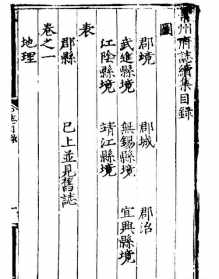 常州府誌續集目録
圖
郡境 郡城 郡治
武進縣境 無錫縣境 宜興縣境
江陰縣境 靖江縣境
表
郡縣 已上並見舊誌
卷之一
地理